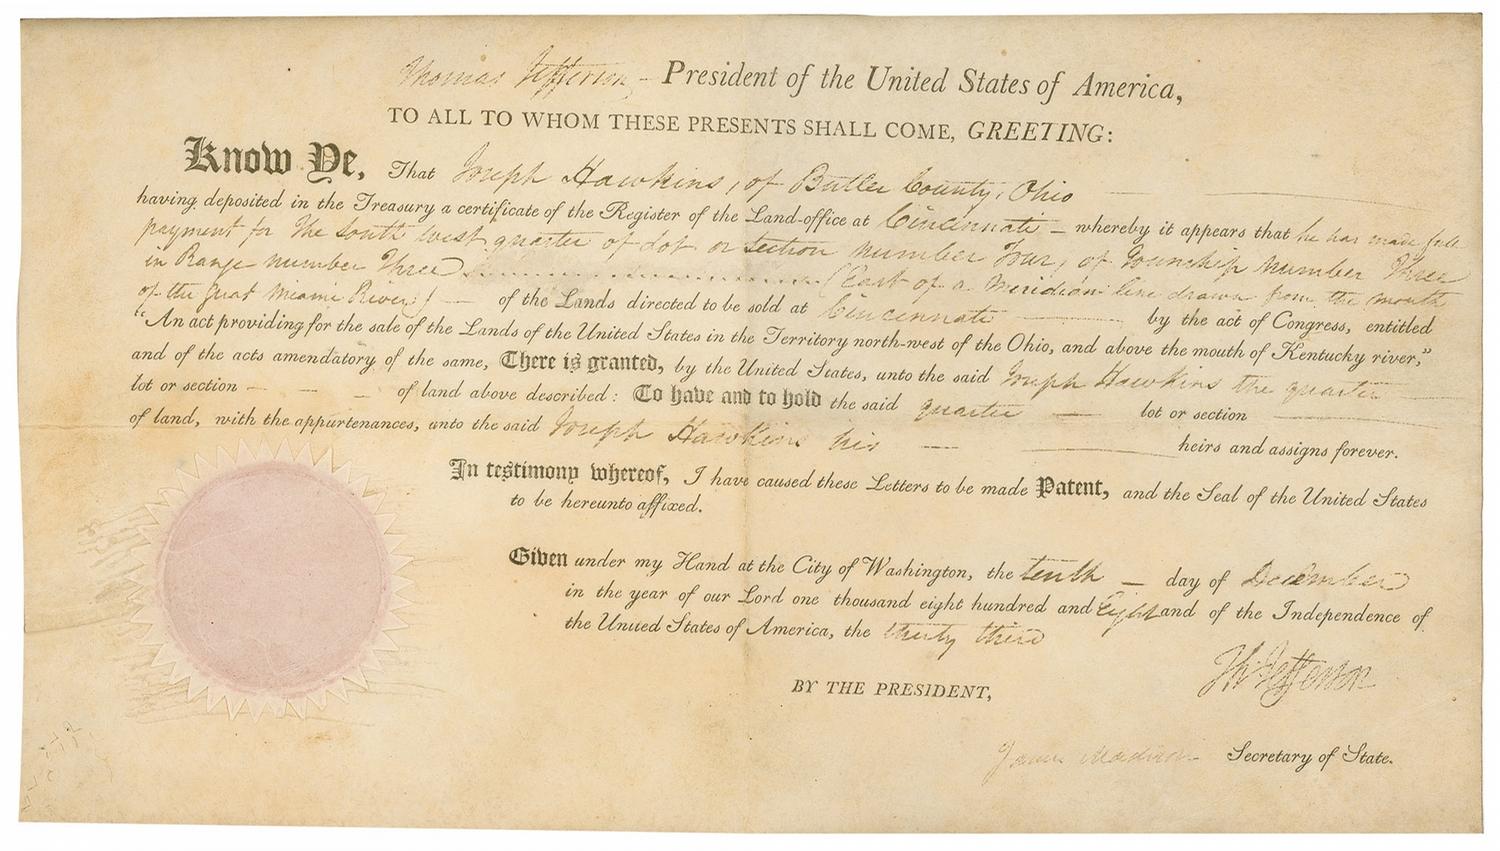 Thomas Jefferson, President of the United States of America,
TO ALL TO WHOM THESE PRESENTS SHALL COME, GREETING:
Know Ye, That Joseph Hawkins, of Butler County, Ohio
having deposited in the Treasury a certificate of the Register of the Land-office at Cincinnati — whereby it appears that he has made full
payment for the South West quarter of Lot or Section number Four, of Township number Three
in Range number Three (East of a Meridian line drawn from the mouth
of the Great Miami River) — of the Lands directed to be sold at Cincinnati by the act of Congress, entitled
“An act providing for the sale of the Lands of the United States in the Territory north-west of the Ohio, and above the mouth of Kentucky river,”
and of the acts amendatory of the same, There is granted, by the United States, unto the said Joseph Hawkins the quarter
lot or section — — — of land above described: To have and to hold the said quarter — lot or section
of land, with the appurtenances, unto the said Joseph Hawkins his — heirs and assigns forever.
In testimony whereof, I have caused these Letters to be made Patent, and the Seal of the United States
to be hereunto affixed.
Given under my Hand at the City of Washington, the tenth — day of December
in the year of our Lord one thousand eight hundred and Eight and of the Independence of
the United States of America, the thirty third
Th: Jefferson
BY THE PRESIDENT,
James Madison Secretary of State.